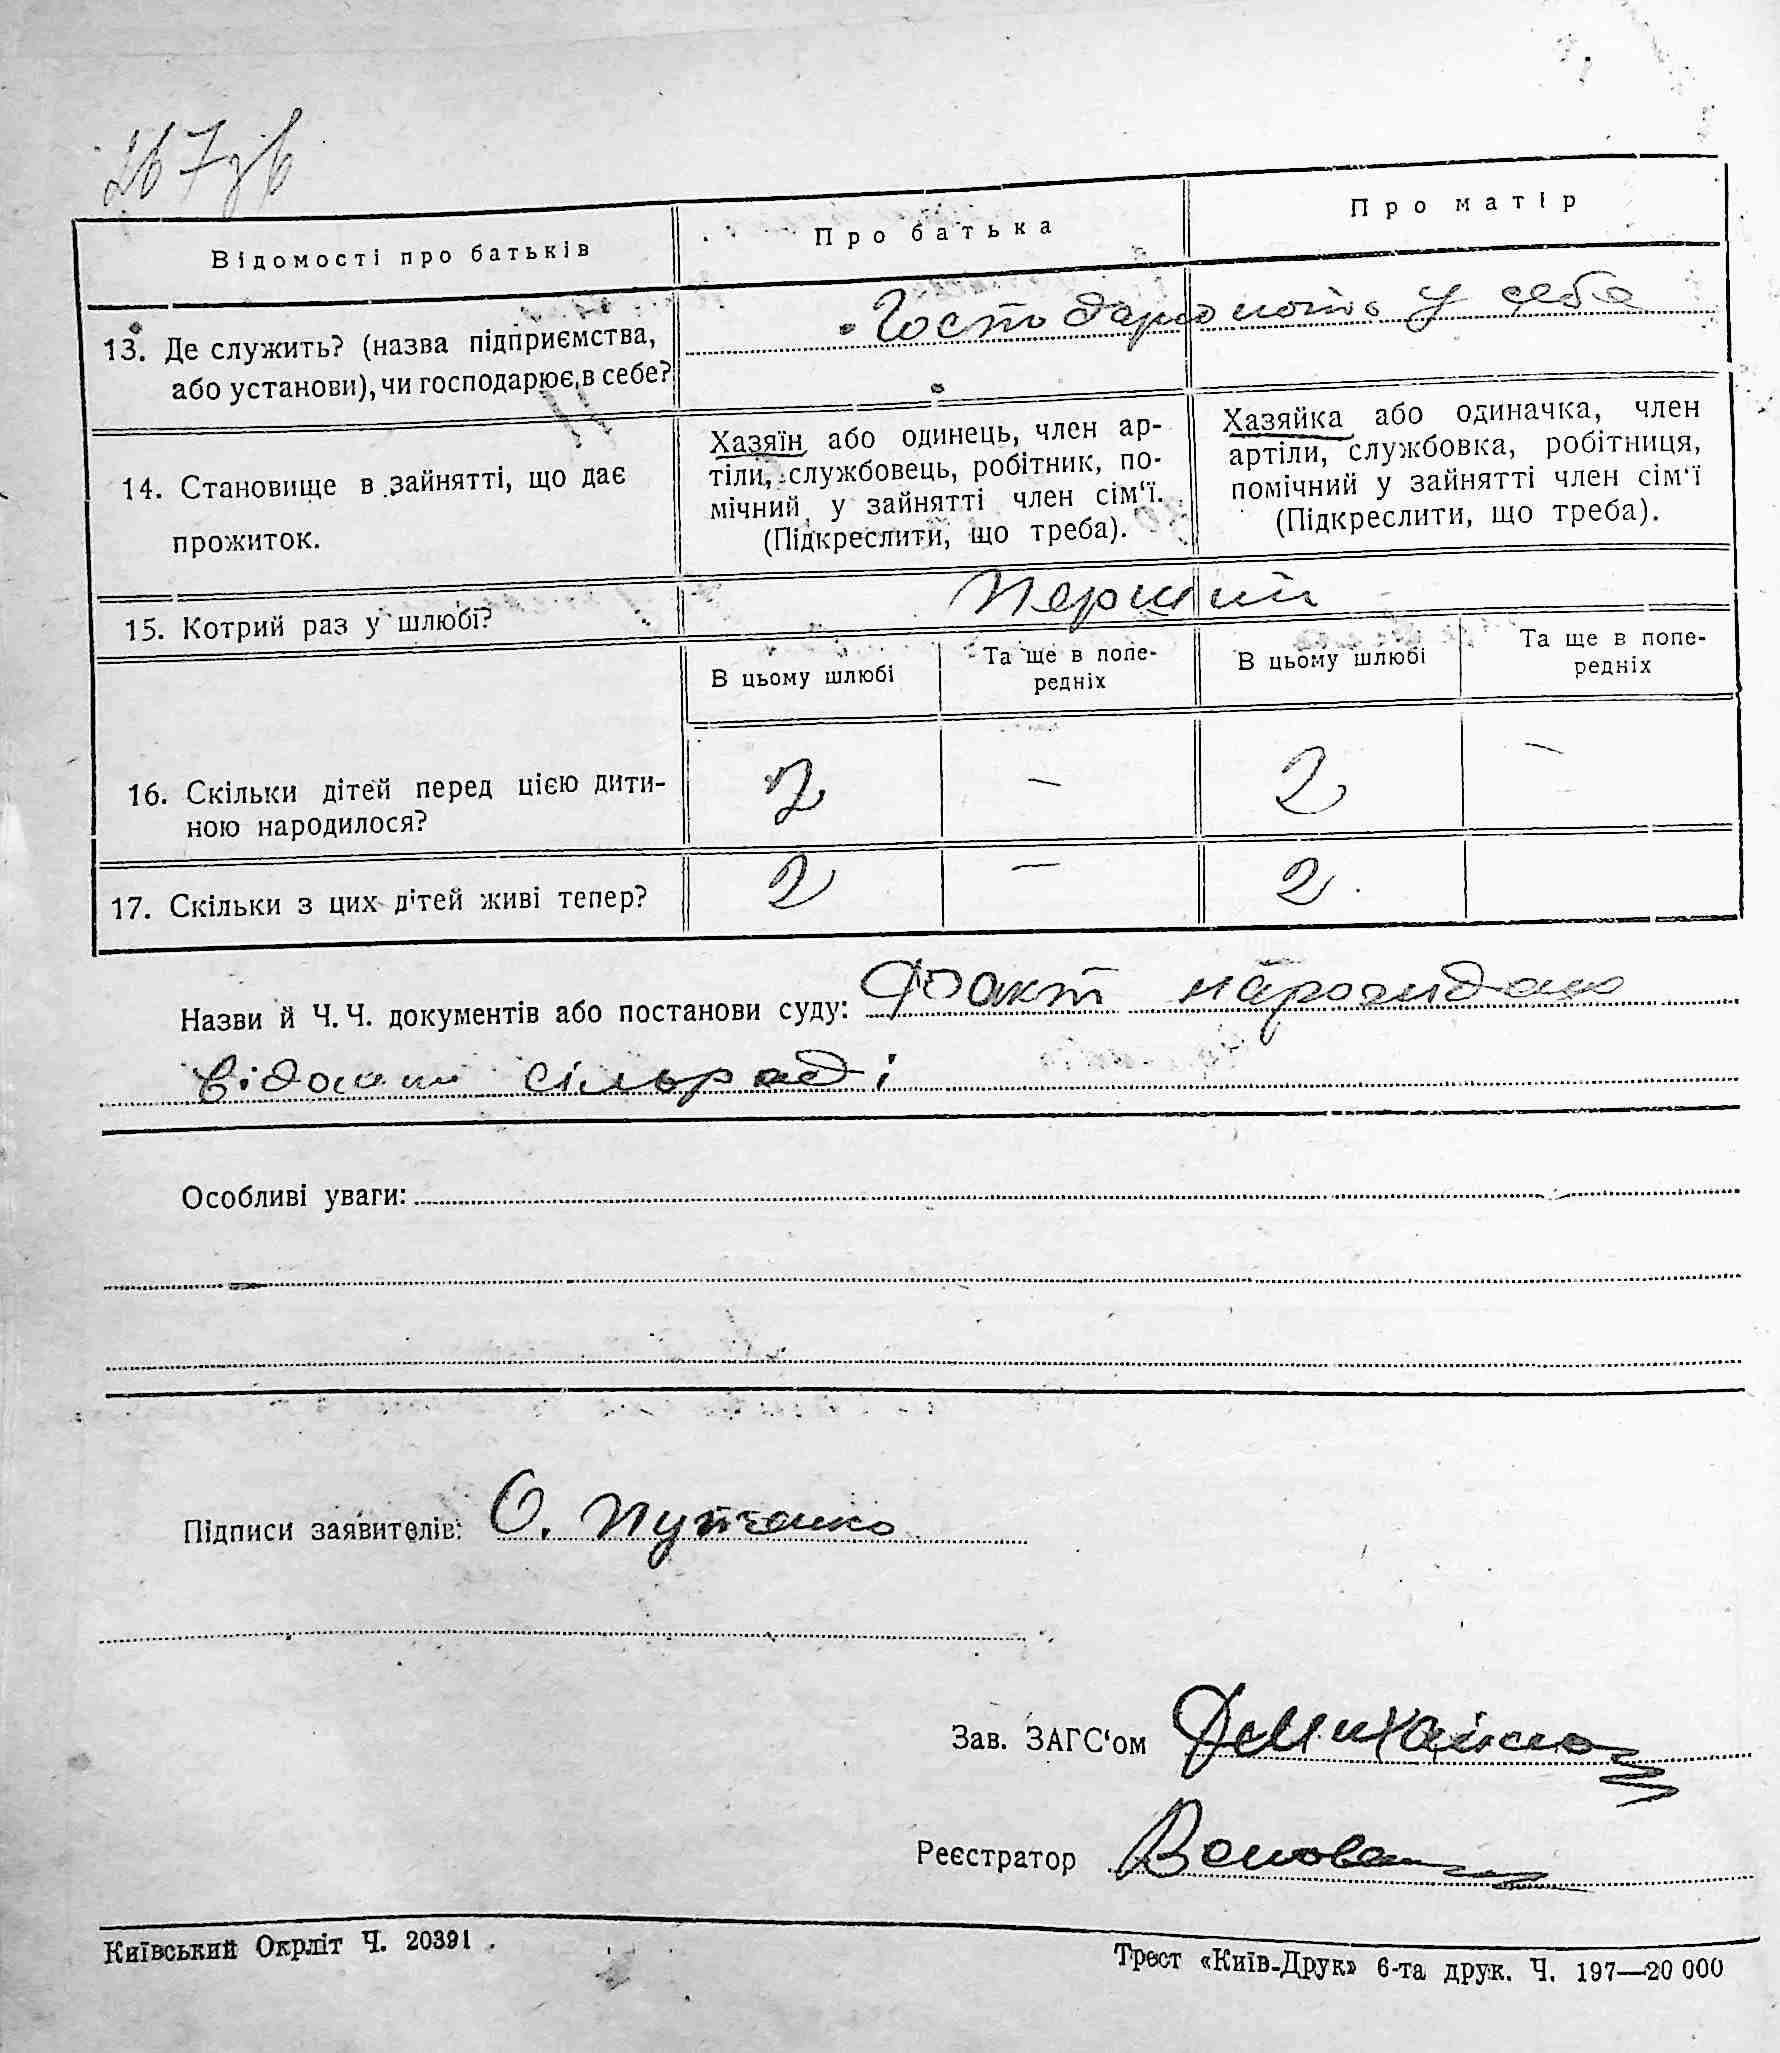 267зв
Відомості про батьків
Про батька
Про матір
13. Де служить? (назва підприємства,
або установи), чи господарює в себе?
Господарюють у себе
14. Становище в зайнятті, що дає
прожиток.
Хазяїн або одинець, член ар-
тіли, службовець, робітник, по-
мічний у зайнятті член сім'ї.
(Підкреслити, що треба).
Хазяйка або одиначка, член
артіли, службовка, робітниця,
помічний у зайнятті член сім'ї
(Підкреслити, що треба).
15. Котрий раз у шлюбі?
Перший
В цьому шлюбі
Та ще в попе-
редніх
В цьому шлюбі
Та ще в попе-
редніх
16. Скільки дітей перед цією дити-
ною народилося?
2 — 2 —
17. Скільки з цих дітей живі тепер?
2 — 2
Назви й Ч. Ч. документів або постанови суду: Факт народження
відомий сільраді
Особливі уваги:
Підписи заявителів: О.
Зав. ЗАГС'ом
Реєстратор
Київський Окрліт Ч. 20391.
Трест «Київ-Друк» 6-та друк. Ч. 197—20 000